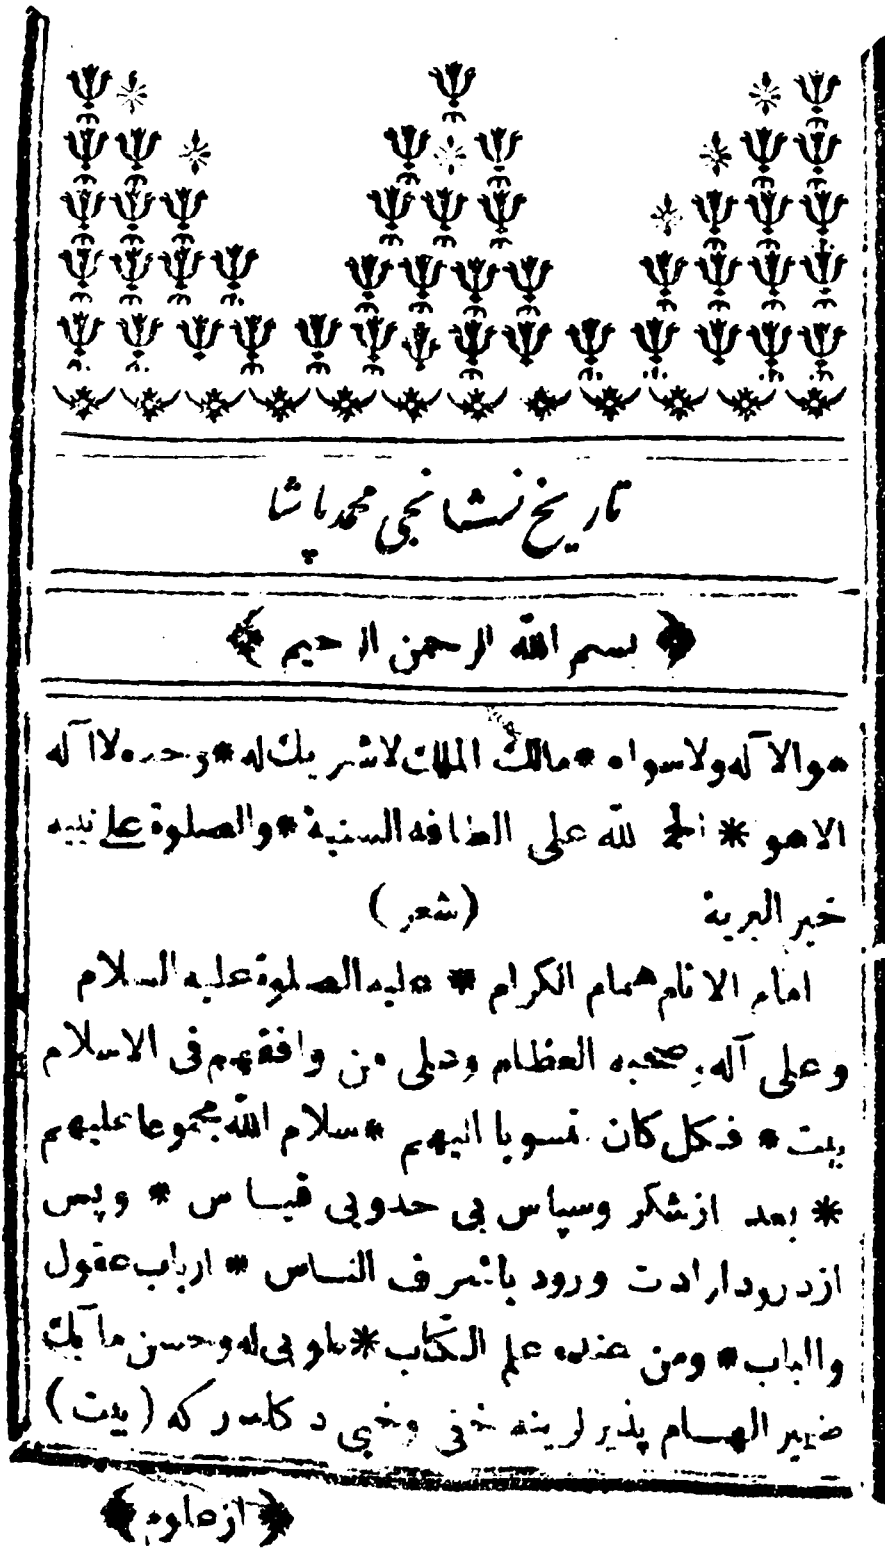 تاريخ نشانجى محمد پاشا
﴿ بسم الله الرحمن الرحيم ﴾
* هو الا آله ولا سواه * مالك الملك لا شريك له * وحده لا آله
الا هو * الحمد لله على الطافه السنية * والصلوة على نبيه
خير البرية (شعر)
امام الانام همام الكرام * عليه الصلوة عليه السلام
وعلى آله وصحبه العظام وعلى من وافقهم فى الاسلام
بيت * فكل كان منسوبا اليهم * سلام الله مجموعا عليهم
* بعد از شكر وسپاس بى حد وبى قياس * و پس
از درود ارادت ورود با شرف الناس * ارباب عقول
والباب * ومن عنده علم الكتاب * وحسن مآبك
ضمير الهام پذير لرينه خفى وخبى دكلدر كه (بيت)
﴿ از علوم ﴾